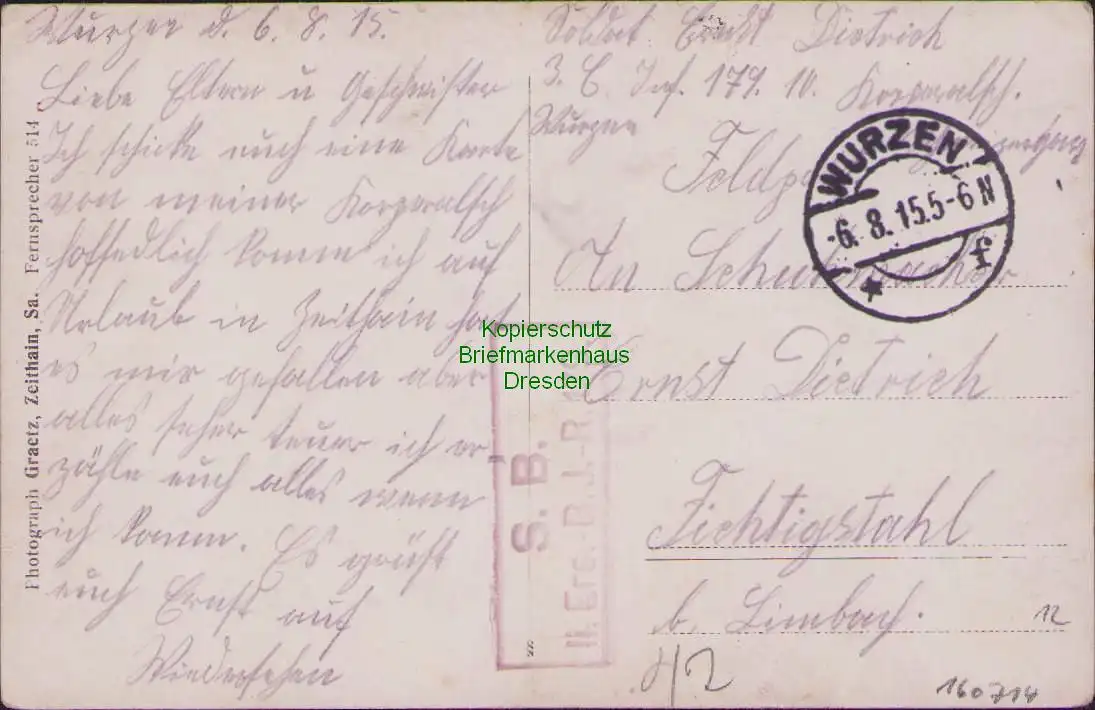 Wurzen d. 6. 8. 15.
Liebe Eltern u Geschwister
Ich schicke euch eine Karte
von meiner Korporalsch
hoffedlich komme ich auf
Urlaub in Zeithain hat
es mir gefallen aber
alles seher teuer ich er
zähle euch alles wenn
ich komm. Es grüßt
euch Ernst auf
Wiedersehen
Photograph Graetz, Zeithain, Sa. Fernsprecher 514
Soldat Ernst Dietrich
3. C. Inf. 179. 10. Korporalsch.
Wurzen
WURZEN
-6. 8. 15. 5-6 N
f
An Schuhmacher
Ernst Dietrich
Fichtigstahl
b. Limbach.
S. B.
II. Ers.-B. J.-R.
Kopierschutz
Briefmarkenhaus
Dresden
12
160714